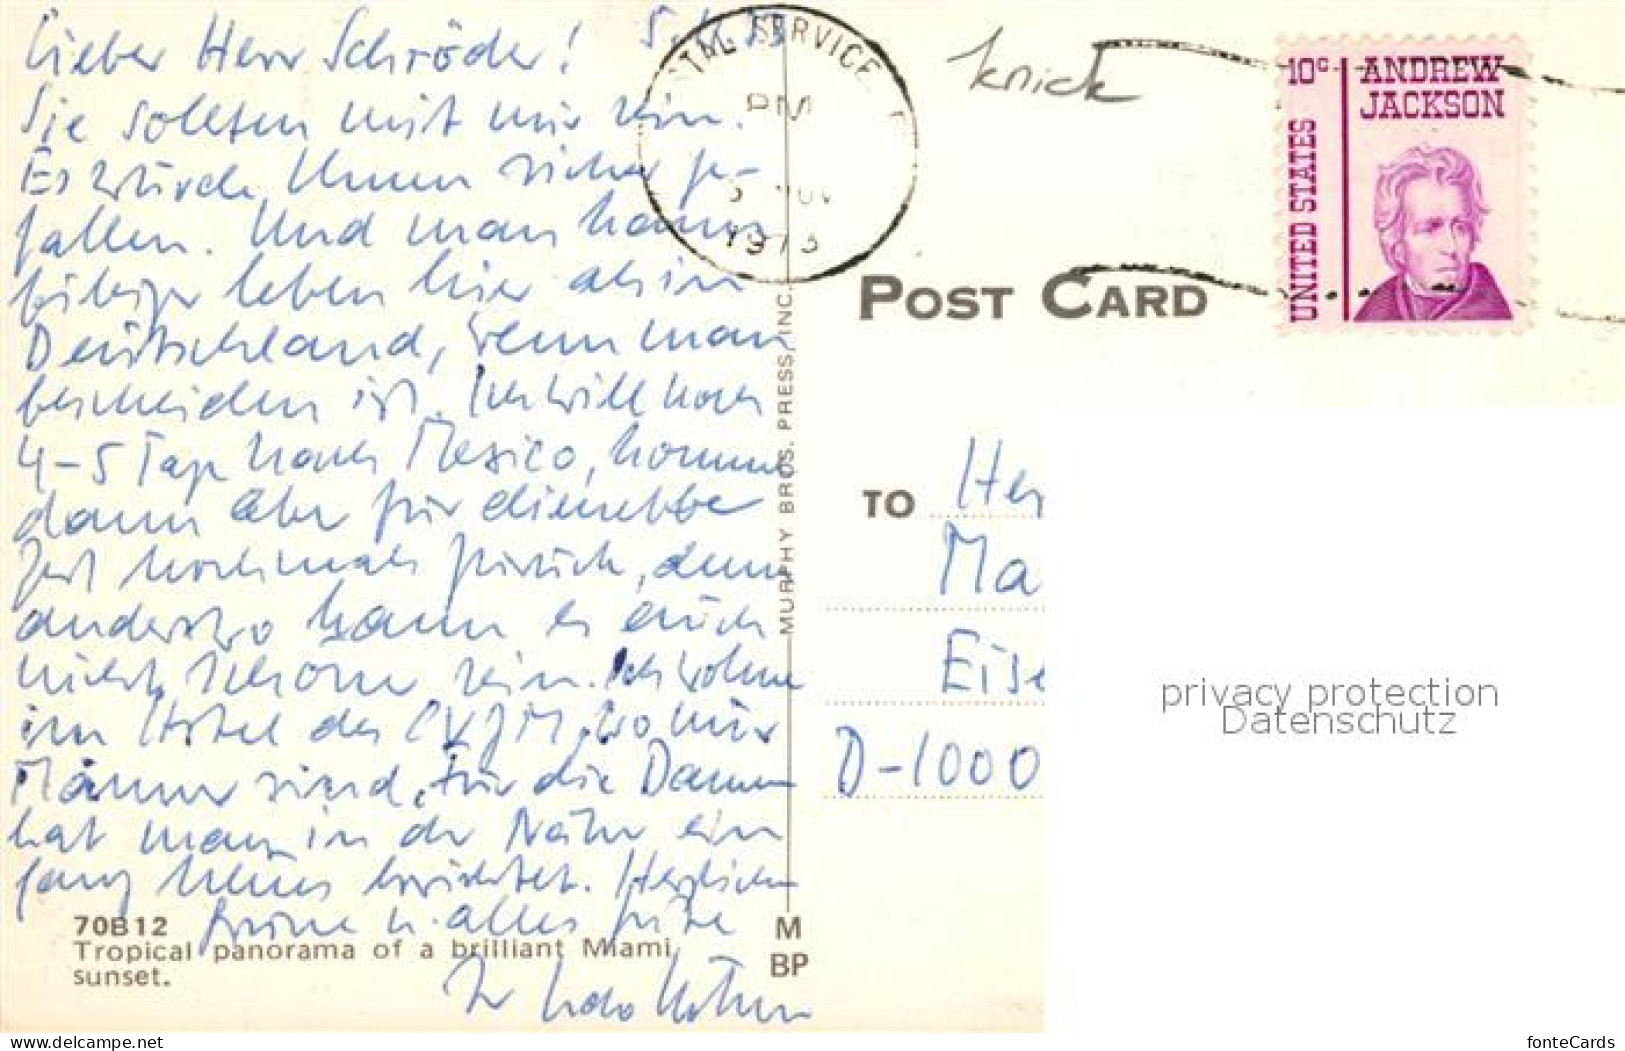 Lieber Herr Schröder!
Sie sollten mit mir sein.
Es würde Ihnen sicher ge-
fallen. Und man kann
billiger leben hier als in
Deutschland, wenn man
bescheiden ist. Ich will noch
4-5 Tage nach Mexico, komme
dann aber für dieselbe
Zeit nochmals zurück, denn
anderswo kann es auch
nicht schöner sein. Ich wohne
im Hotel des CVJM, wo nur
Männer sind. Für die Damen
hat man in der Nähe ein
ganz neues errichtet. Herzliche
Grüße u. alles Gute
Ihr Udo
70B12
Tropical panorama of a brilliant Miami
sunset.
MURPHY BROS. PRESS, INC.
M
BP
SERVICE
PM
1973
knick
10c ANDREW
JACKSON
UNITED STATES
POST CARD
TO Her
Ma
Eise
D-1000
privacy protection
Datenschutz
www.delcampe.net
fonteCards